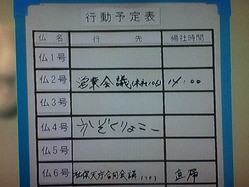 行動予定表
仏名 行先 帰社時間
仏1号
仏2号 営業会議 14:00
仏3号
仏4号 かぞくりょこー
仏5号
仏6号 社保天下合同会議 直帰